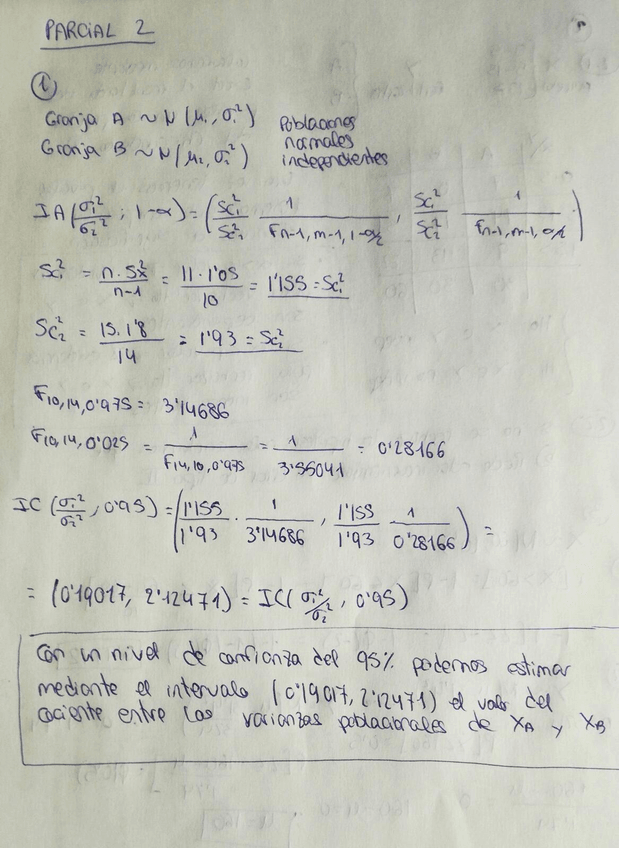 PARCIAL 2
①
Granja A ~ N(μ₁, σ₁²) Poblaciones
normales
Granja B ~ N(μ₂, σ₂²) independientes
IA(σ₁²/σ₂²; 1-α) = (Sc₁²/Sc₂² 1/Fn-1,m-1,1-α/2, Sc₁²/Sc₂² 1/Fn-1,m-1,α/2)
Sc₁² = n·Sx²/n-1 = 11·1'05/10 = 1'155 = Sc₁²
Sc₂² = 15·1'8/14 = 1'93 = Sc₂²
F10,14,0'975 = 3'14686
F10,14,0'025 = 1/F14,10,0'975 = 1/3'55041 = 0'28166
IC(σ₁²/σ₂², 0'95) = (1'155/1'93 · 1/3'14686, 1'155/1'93 1/0'28166) =
= (0'19017, 2'12471) = IC(σ₁²/σ₂², 0'95)
Con un nivel de confianza del 95% podemos estimar
mediante el intervalo (0'19017, 2'12471) el valor del
cociente entre las varianzas poblacionales de XA y XB